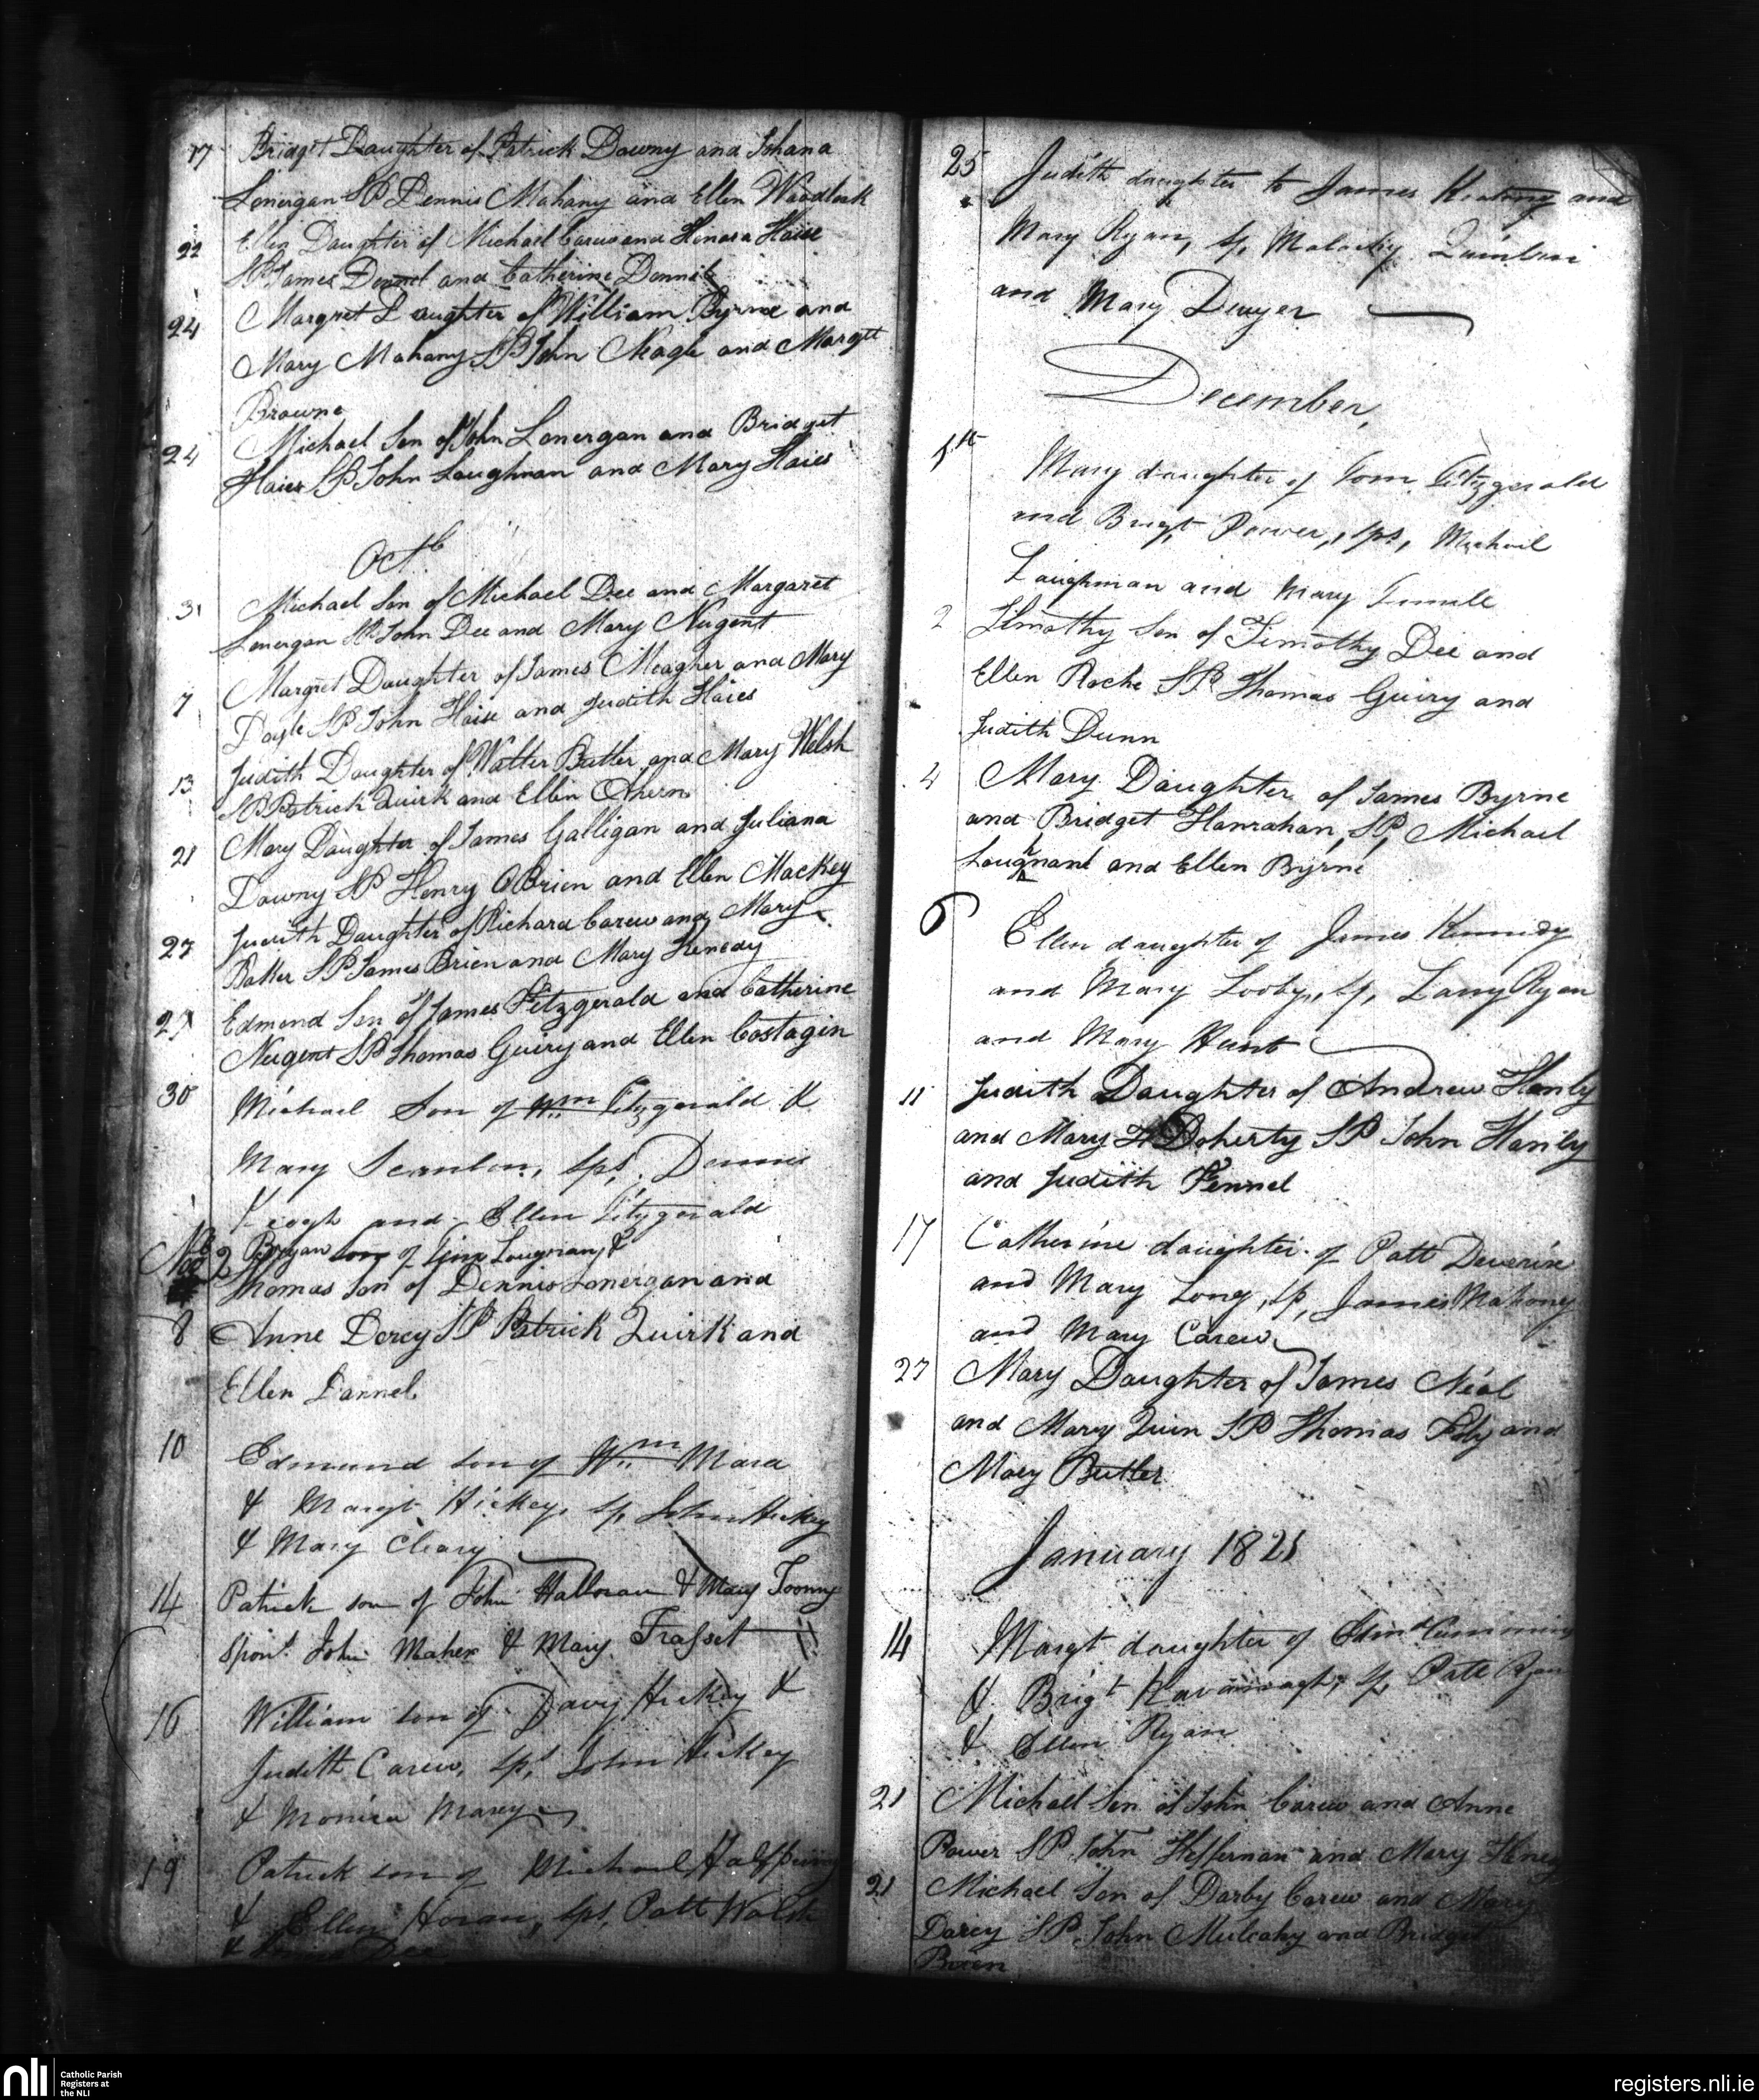 17 Bridget Daughter of Patrick Downy and Johana
Lonergan SP Dennis Mahany and Ellen Woodlock
22 Ellen Daughter of Michael Carew and Honora Haise
SP James Donnel and Catherine Donnel
24 Margret Daughter of William Byrne and
Mary Mahany SP John Neagle and Margtt
Browne
24 Michael Son of John Lonergan and Bridget
Haies SP John Laughnan and Mary Haies
Octb
3 Michael Son of Michael Dee and Margaret
Lonergan SP John Dee and Mary Nugent
7 Margret Daughter of James Meagher and Mary
Doyle SP John Haise and Judith Haies
13 Judith Daughter of Walter Butler and Mary Welsh
SP Patrick Quirk and Ellin Ahern
21 Mary Daughter of James Galligan and Juliana
Downy SP Henry OBrien and Ellen Mackey
27 Judith Daughter of Richard Carew and Mary
Butler SP James Brien and Mary Kenedy
27 Edmond Son of James Fitzgerald and Catherine
Nugent SP Thomas Guiry and Ellen Costagin
30 Michael Son of Wm Fitzgerald &
Mary Scanlon, Sps, Dennis
Keogh and Ellen Fitzgerald
2 Bryan son of Tim Lougnan &
Thomas Son of Dennis Lonergan and
8 Anne Dorcy SP Patrick Quirk and
Ellen Dannel
10 Edmund son of Wm Mara
& Margt Hickey, Sp, John Hickey
& Mary Cleary
14 Patrick son of John Halloran & Mary Toomy
Spons. John Maher & Mary Trasset
16 William son of Davy Hickey &
Judith Carew, Sps, John Hickey
& Monica Marey
19 Patrick son of Michael Halfpenny
& Ellen Horan, Sps, Patt Walsh
& Dee
25 Judith daughter to James Keating and
Mary Ryan, Sp, Malachy Quinlan
and Mary Dwyer
December,
1st Mary daughter of Tom Fitzgerald
and Brigt Power, Sps, Michail
Laughnan and Mary
2 Timothy Son of Timothy Dee and
Ellen Roche SP Thomas Guiry and
Judith Dunn
4 Mary Daughter of James Byrne
and Bridget Hanrahan, SP, Michael
Loughnan and Ellen Byrne
6 Ellen daughter of James Kennedy
and Mary Looby, Sp, Lanry Ryan
and Mary Hunt
11 Judith Daughter of Andrew Hanly
and Mary Doherty SP John Hanly
and Judith Fennel
17 Catherine daughter of Patt Deverix
and Mary Long, Sp, James Mahony
and Mary Carew
27 Mary Daughter of James Neal
and Mary Quin SP Thomas and
Mary Butler
January 1821
14 Margt daughter of Edmd Cummins
& Brigt Kavanagh, Sp, Patt Ryan
& Ellen Ryan
21 Michael Son of John Carew and Anne
Power SP John Heffernan and Mary
21 Michael Son of Darby Carew and Mary
Darcy SP John Mulcahy and Bridget
Brien
nli
Catholic Parish
Registers at
the NLI
registers.nli.ie